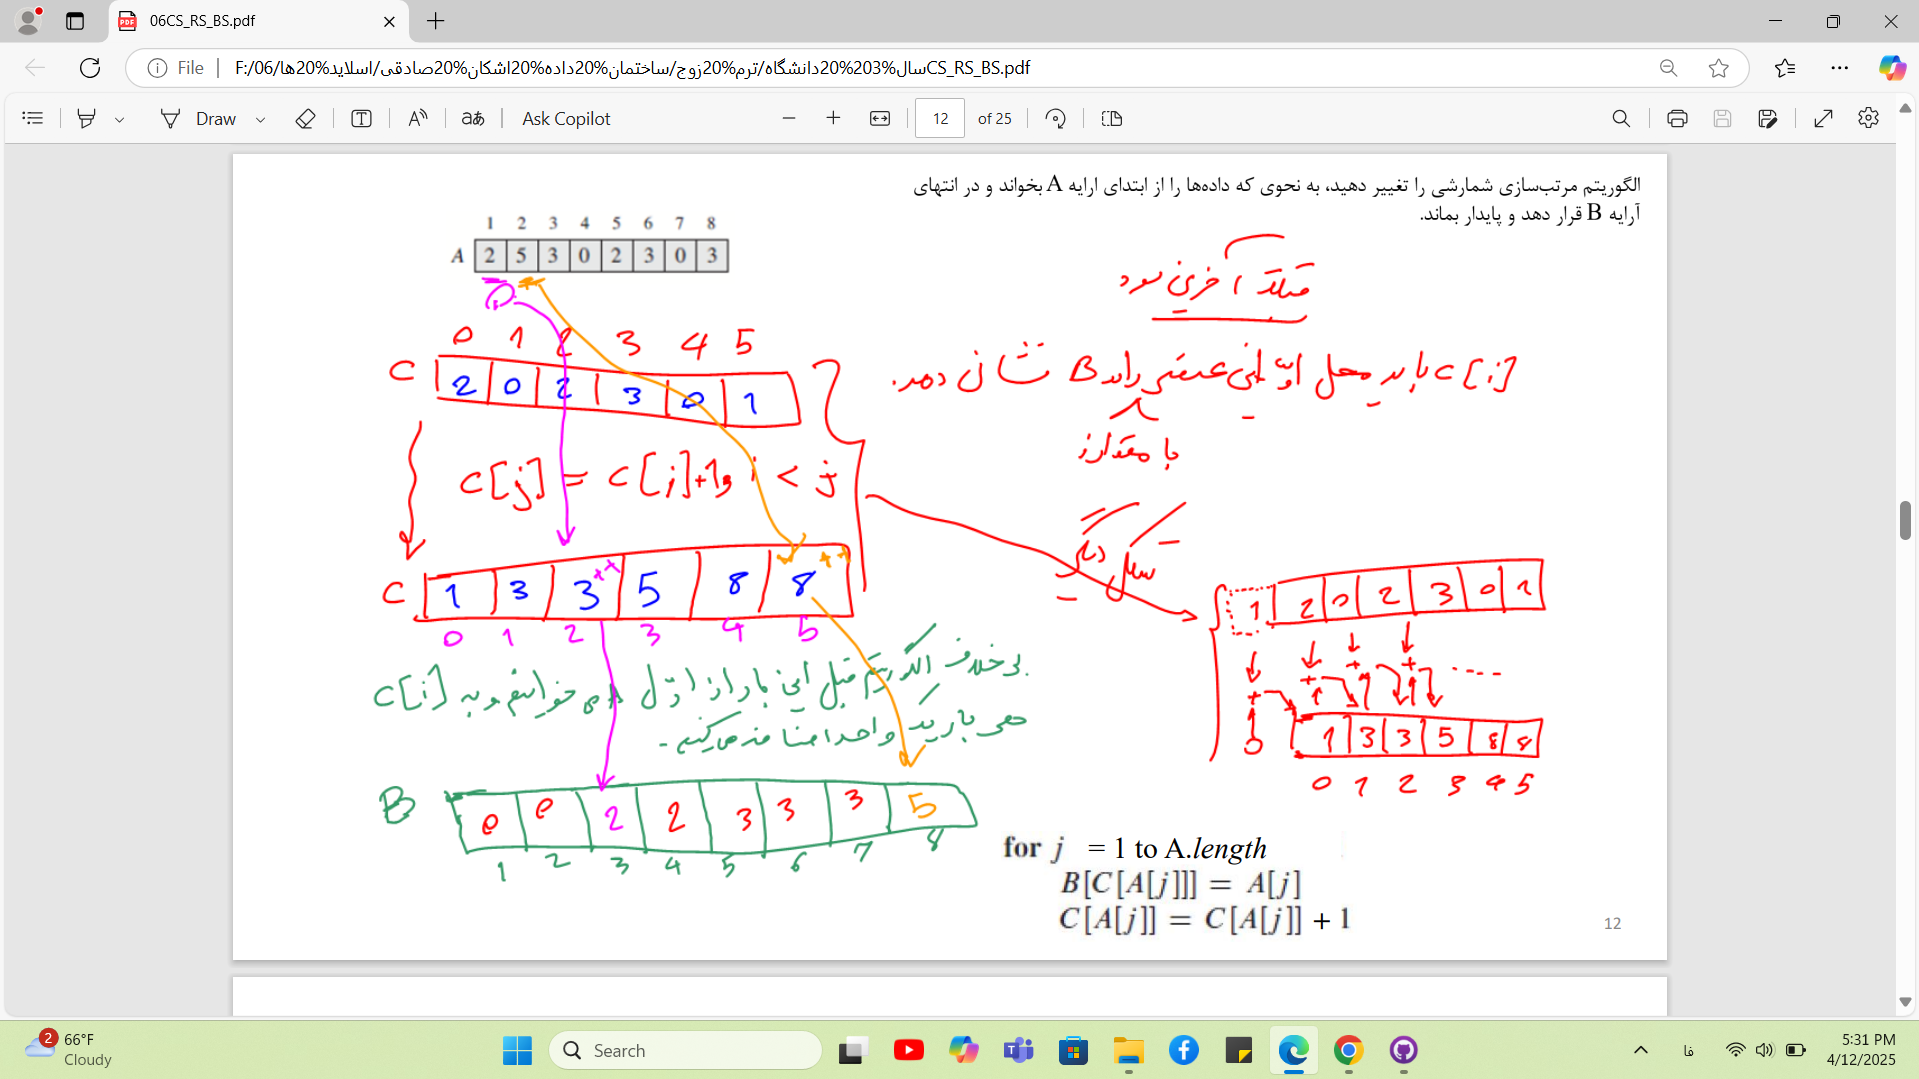 06CS_RS_BS.pdf
File
F:/06/سال%203%20دانشگاه/ترم%20زوج/ساختمان%20داده%20اشکان%20صادقی/اسلاید%20ها/CS_RS_BS.pdf
Draw
aあ
Ask Copilot
12 of 25
الگوریتم مرتب‌سازی شمارشی را تغییر دهید، به نحوی که داده‌ها را از ابتدای ارایه A بخواند و در انتهای
آرایه B قرار دهد و پایدار بماند.
1 2 3 4 5 6 7 8
A 2 5 3 0 2 3 0 3
آخرین
0 1 2 3 4 5
C 2 0 2 3 0 1
C[i] باید محل اولین عنصر را در B نشان دهد.
با مقدار i
C[j] = C[i]+1 i < j
شکل دیگر
C 1 3 3++ 5 8 8++
0 1 2 3 4 5
1 2 0 2 3 0 1
برخلاف الگوریتم قبل این بار از اول A می خوانیم و به C[i]
هی بار یک واحد اضافه می کنیم.
0 1 3 3 5 8 8
0 1 2 3 4 5
B 0 0 2 2 3 3 3 5
1 2 3 4 5 6 7 8
for j = 1 to A.length
B[C[A[j]]] = A[j]
C[A[j]] = C[A[j]] + 1
12
2
66°F
Cloudy
Search
فا
5:31 PM
4/12/2025